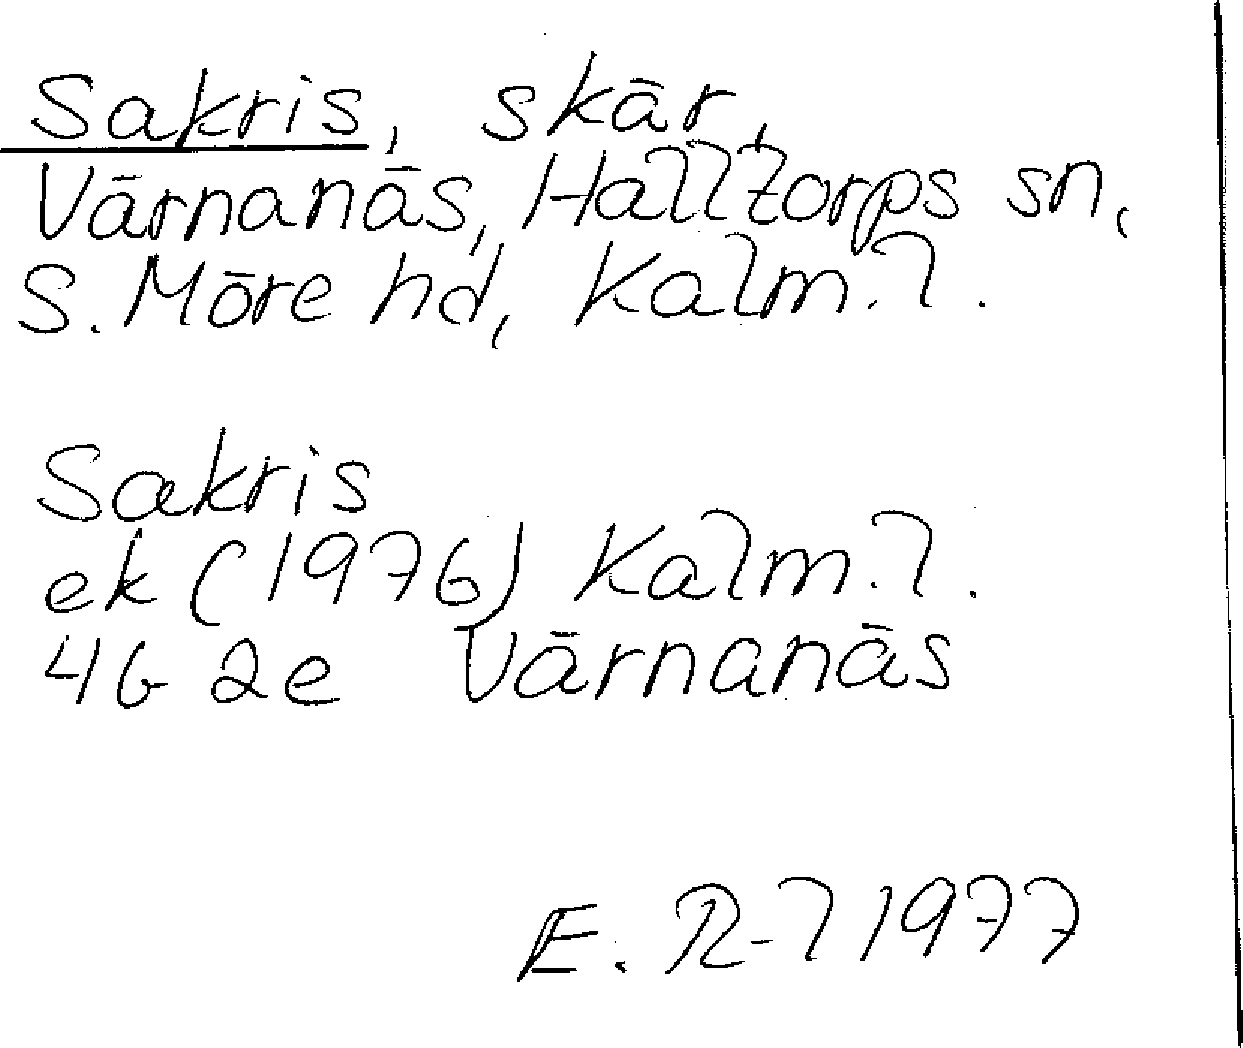 Sakris, skär,
Värnanäs, Halltorps sn,
S. Möre hd, Kalm. l.
Sakris
ek (1976) Kalm. l.
4G 2e Värnanäs
E. R-l 1977